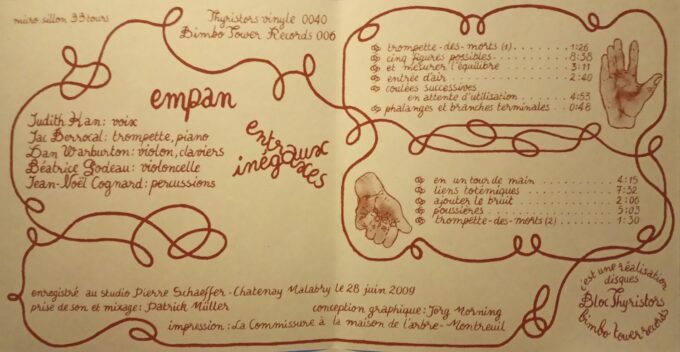 micro sillon 33 tours
Thyristors vinyle 0040
Bimbo Tower Records 006
empan
Judith Kan: voix
Jac Berrocal: trompette, piano
Dan Warburton: violon, claviers
Béatrice Godeau: violoncelle
Jean-Noël Cognard: percussions
entraxes
inégaux
trompette-des-morts (1) 1:26
cinq figures possibles 8:38
et mesurer l'équilibre 3:11
entrée d'air 2:40
coulées successives
en attente d'utilisation 4:53
phalanges et branches terminales 0:48
en un tour de main 4:15
liens totémiques 7:32
ajouter le bruit 2:06
poussières 5:03
trompette-des-morts (2) 1:30
enregistré au studio Pierre Schaeffer - Chatenay Malabry le 28 juin 2009
prise de son et mixage: Patrick Müller
conception graphique: Jörg Morning
impression: La Commissure à la maison de l'arbre - Montreuil
c'est une réalisation
disques
Bloc Thyristors
bimbo tower records